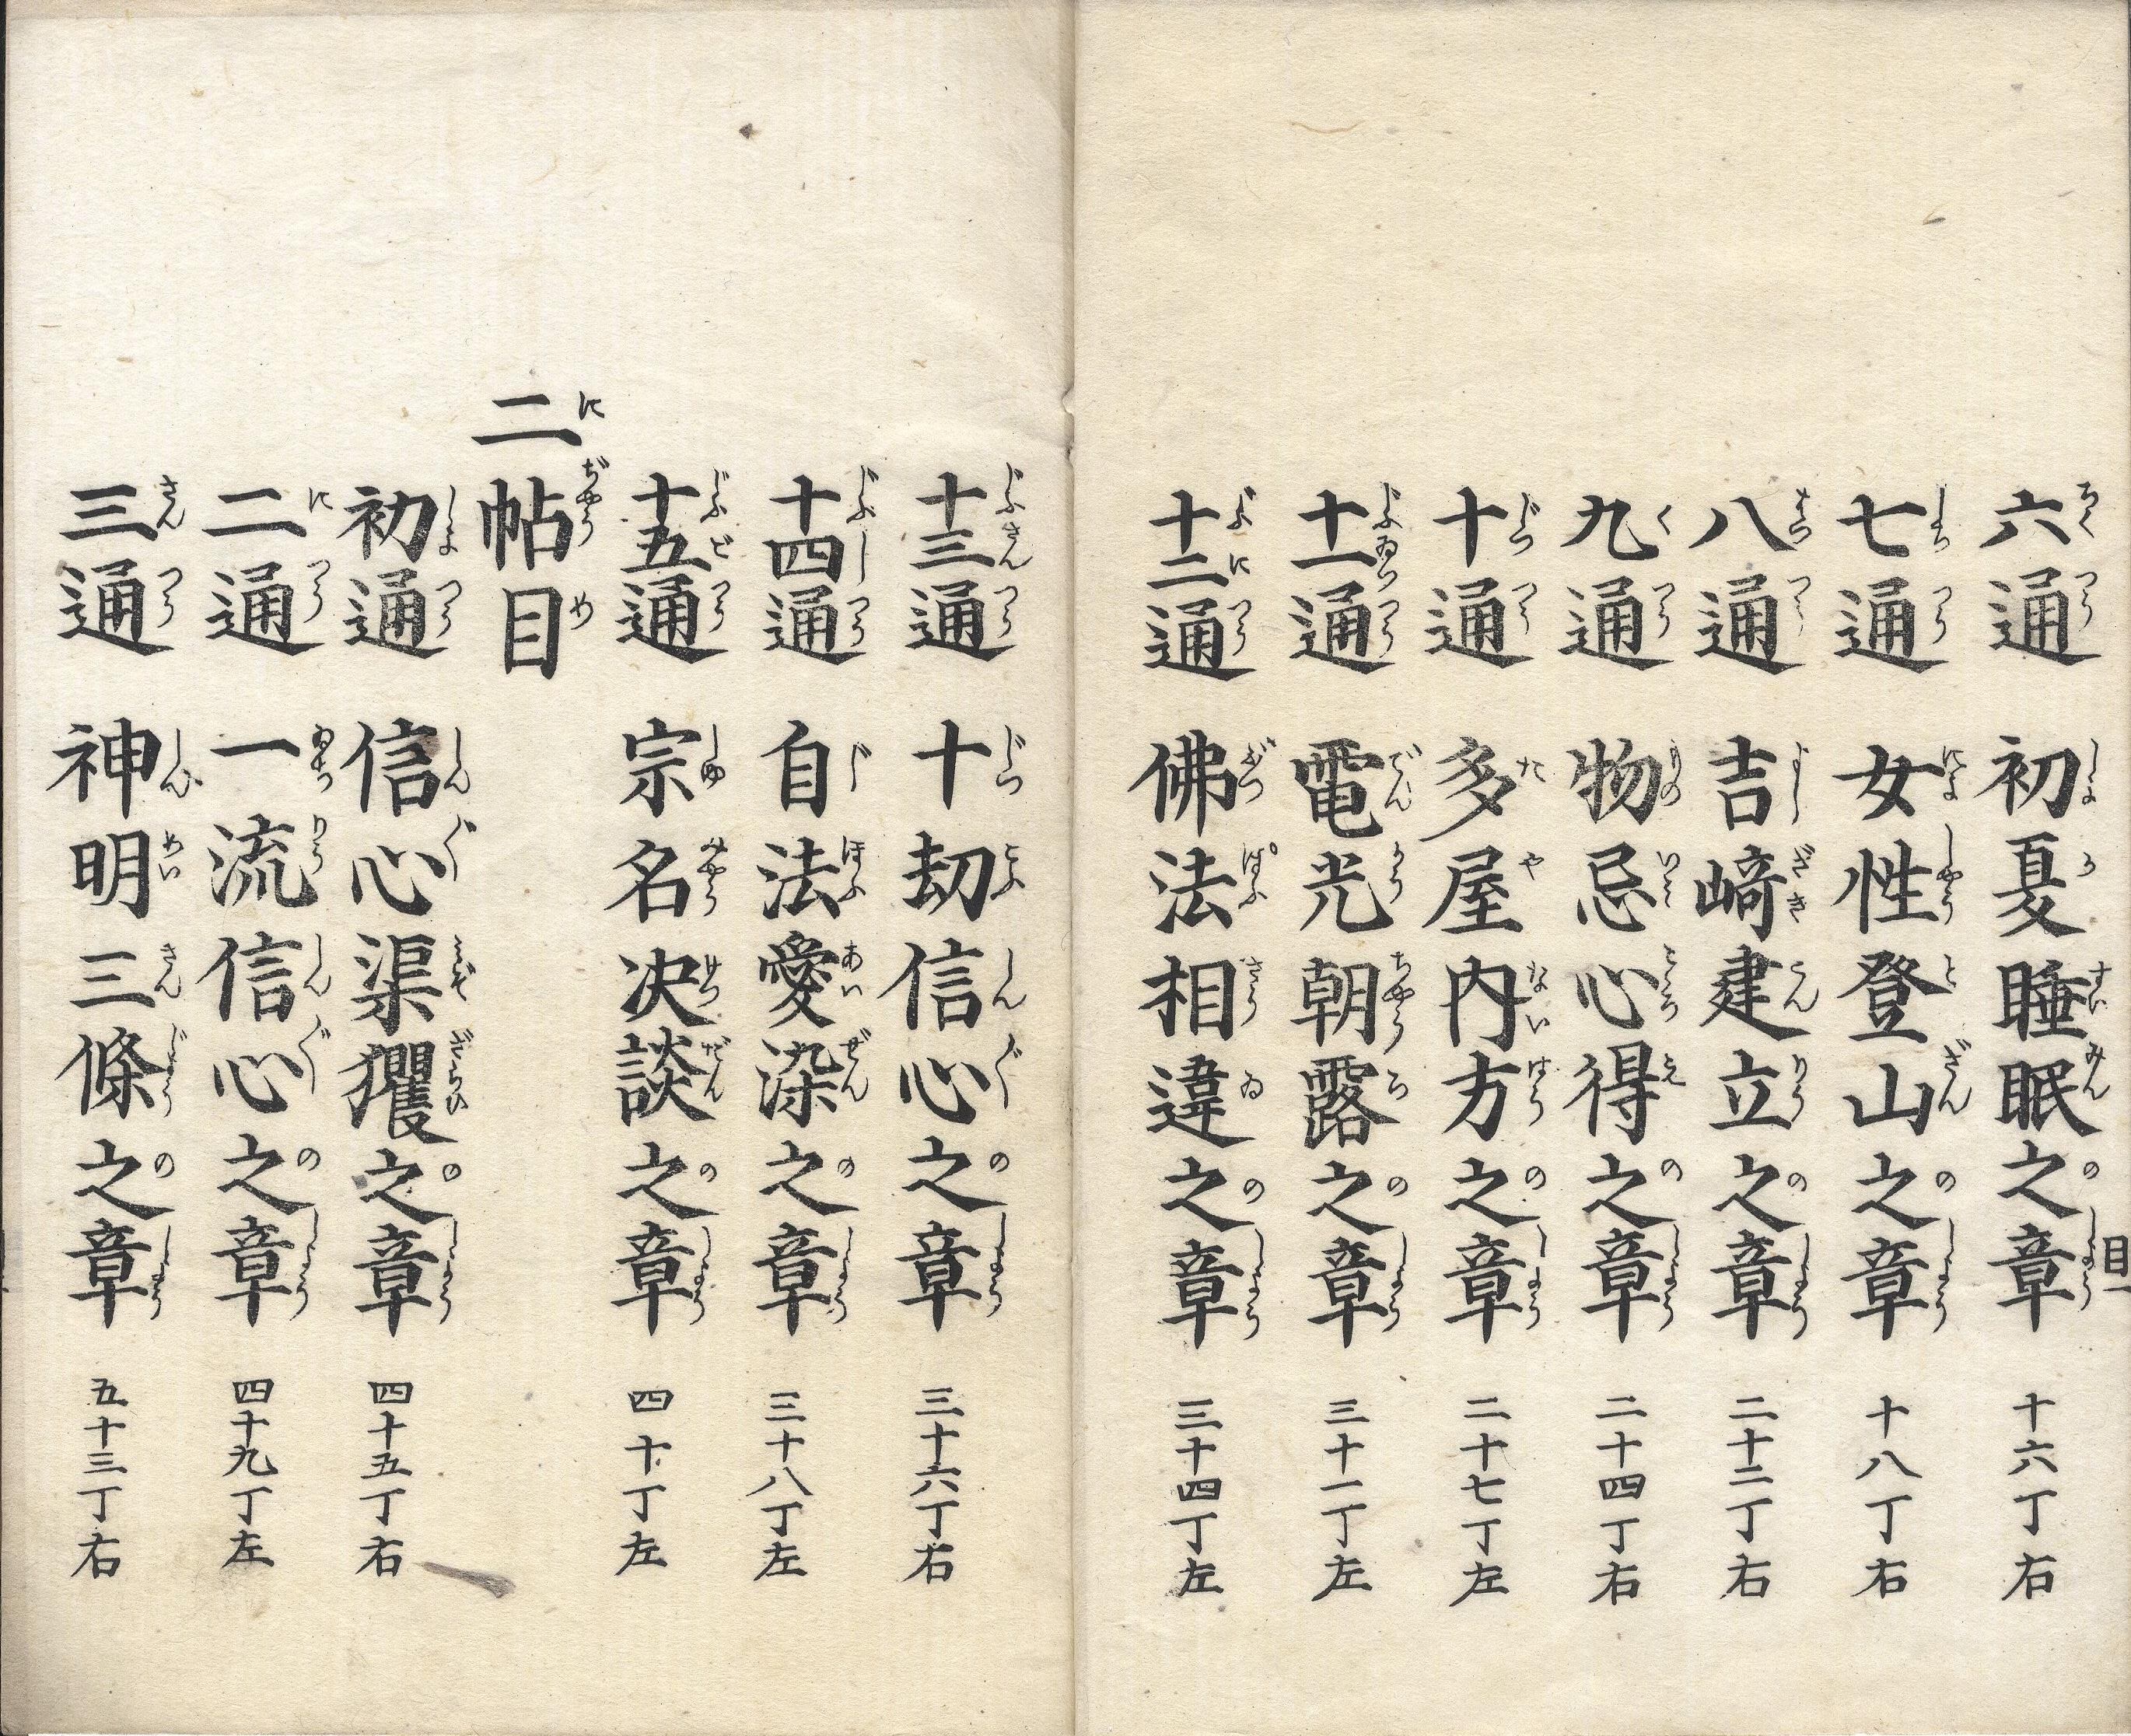 六通 初夏睡眠之章 十六丁右
七通 女性登山之章 十八丁右
八通 吉﨑建立之章 二十二丁右
九通 物忌心得之章 二十四丁右
十通 多屋内方之章 二十七丁左
十一通 電光朝露之章 三十一丁左
十二通 佛法相違之章 三十四丁左
目一
十三通 十劫信心之章 三十六丁右
十四通 自法愛染之章 三十八丁左
十五通 宗名决談之章 四十丁左
二帖目
初通 信心渠玃之章 四十五丁右
二通 一流信心之章 四十九丁左
三通 神明三條之章 五十三丁右